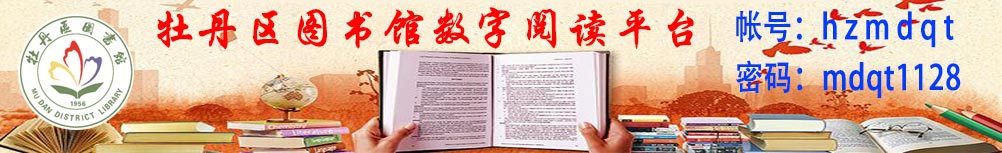 牡丹区图书馆数字阅读平台
帐号：hzmdqt
密码：mdqt1128
牡丹区图书馆
1956
MU DAN DISTRICT LIBRARY
Literature
Language